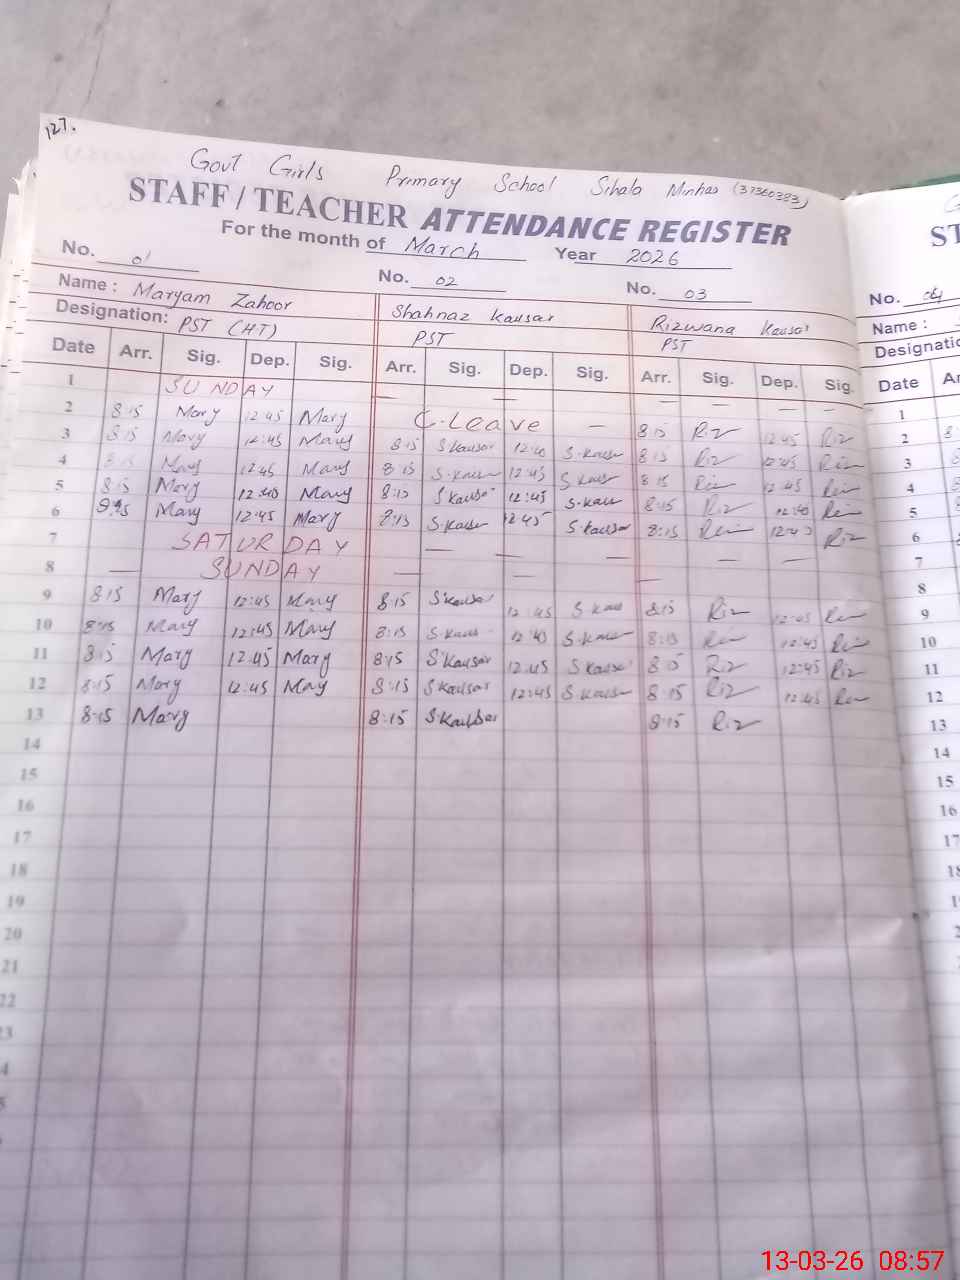 127.
Govt Girls Primary School Sihala Minhas (37360383)
STAFF / TEACHER ATTENDANCE REGISTER
For the month of March Year 2026
No. 01 No. 02 No. 03
Name : Maryam Zahoor Shahnaz Kausar Rizwana Kausar
Designation: PST (HT) PST PST
Date Arr. Sig. Dep. Sig. Arr. Sig. Dep. Sig. Arr. Sig. Dep. Sig.
1 SUNDAY — — — — — —
2 8:15 Mary 12:45 Mary C-Leave — 8:15 Riz 12:45 Riz
3 8:15 Mary 12:45 Mary 8:15 S.Kausar 12:40 S.Kausar 8:15 Riz 12:45 Riz
4 8:15 Mary 12:45 Mary 8:15 S.Kausar 12:45 S.Kausar 8:15 Riz 12:45 Riz
5 8:15 Mary 12:40 Mary 8:15 S.Kausar 12:45 S.Kausar 8:15 Riz 12:40 Riz
6 Mary 12:45 Mary 8:15 S.Kausar 12:45 S.Kausar 8:15 Riz 12:45 Riz
7 SATURDAY — — — — —
8 — SUNDAY — — —
9 8:15 Mary 12:45 Mary 8:15 S.Kausar 12:45 S.Kausar 8:15 Riz 12:45 Riz
10 8:15 Mary 12:45 Mary 8:15 S.Kausar 12:45 S.Kausar 8:15 Riz 12:45 Riz
11 8:15 Mary 12:45 Mary 8:15 S.Kausar 12:45 S.Kausar 8:15 Riz 12:45 Riz
12 8:15 Mary 12:45 Mary 8:15 S.Kausar 12:45 S.Kausar 8:15 Riz 12:45 Riz
13 8:15 Mary 8:15 S.Kausar 8:15 Riz
14
15
16
17
18
19
20
21
22
23
No. 04
Name :
Date
1
2
3
4
5
6
7
8
9
10
11
12
13
14
15
16
17
18
13-03-26 08:57